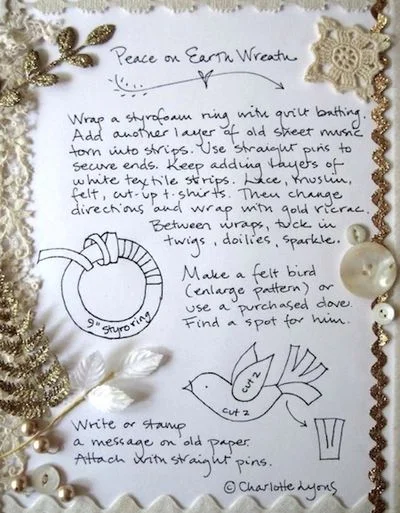 Peace on Earth Wreath
Wrap a styrofoam ring with quilt batting.
Add another layer of old sheet music
torn into strips. Use straight pins to
secure ends. Keep adding layers of
white textile strips. Lace, muslin,
felt, cut-up t-shirts. Then change
directions and wrap with gold ricrac.
Between wraps, tuck in
twigs, doilies, sparkle.
9" styro ring
Make a felt bird
(enlarge pattern) or
use a purchased dove.
Find a spot for him.
cut 2
cut 2
Write or stamp
a message on old paper.
Attach with straight pins.
© Charlotte Lyons